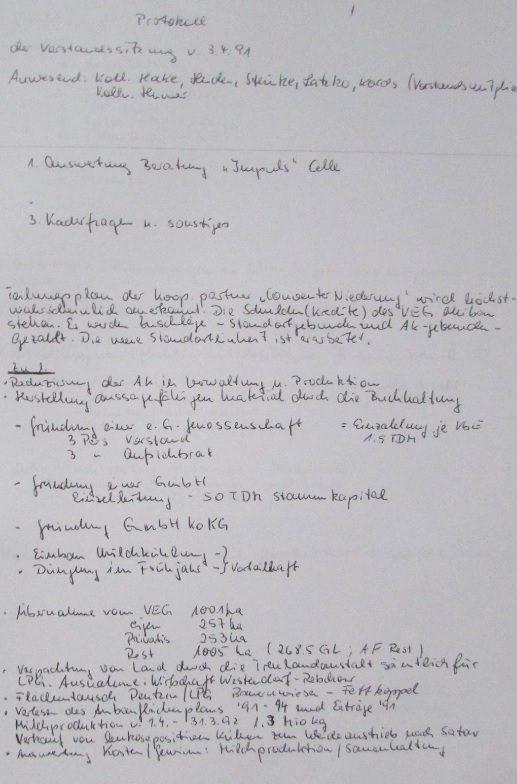 1
Protokoll
der Vorstandssitzung v. 3.4.91
Anwesend: Koll. Hake, Steinke, Latzko, Kords (Vorstandsmitglie
Kolln.
1. Auswertung Beratung "Impuls" Celle
3. Kaderfragen u. sonstiges
Teilungsplan der Koop. partner "Conventer Niederung" wird höchst-
wahrscheinlich anerkannt. Die Schulden (Kredite) des VEG bleiben
stehen. Es werden Zuschläge - Standortgebunden und AK-gebunden -
gezahlt. Die neue Standorteinheit ist erarbeitet.
Zu 1.
· Reduzierung der AK in Verwaltung u. Produktion
· Herstellung aussagefähigen Material durch die Buchhaltung
- Gründung einer e.G. Genossenschaft = Einzahlung je VbE
3 Pers Vorstand 1.5 TDM
3 " Aufsichtsrat
- Gründung einer GmbH
- 50 TDM Stammkapital
- Gründung GmbH & Co KG
· Einbau Milchkühlung -}
· Düngung im Frühjahr -} Vorteilhaft
· Übernahme vom VEG 1001 ha
eigen 257 ha
Privatis. 253 ha
Rest 1005 ha (268.5 GL; AF Rest)
· Verpachtung von Land durch die Treuhandanstalt sämtlich für
LPG. Ausnahme: Wirtschaft
· Flächentausch /LPG - Fettkoppel
· Verlesen des Anbauflächenplans '91 - 94 und Erträge '91
Milchproduktion v. 1.4. - 31.3.92 1,3 Mio kg
Verkauf von leukosepositiven Kühen zum Weideaustrieb nach
· Auswertung Kosten/Gewinn: Milchproduktion/Sauenhaltung